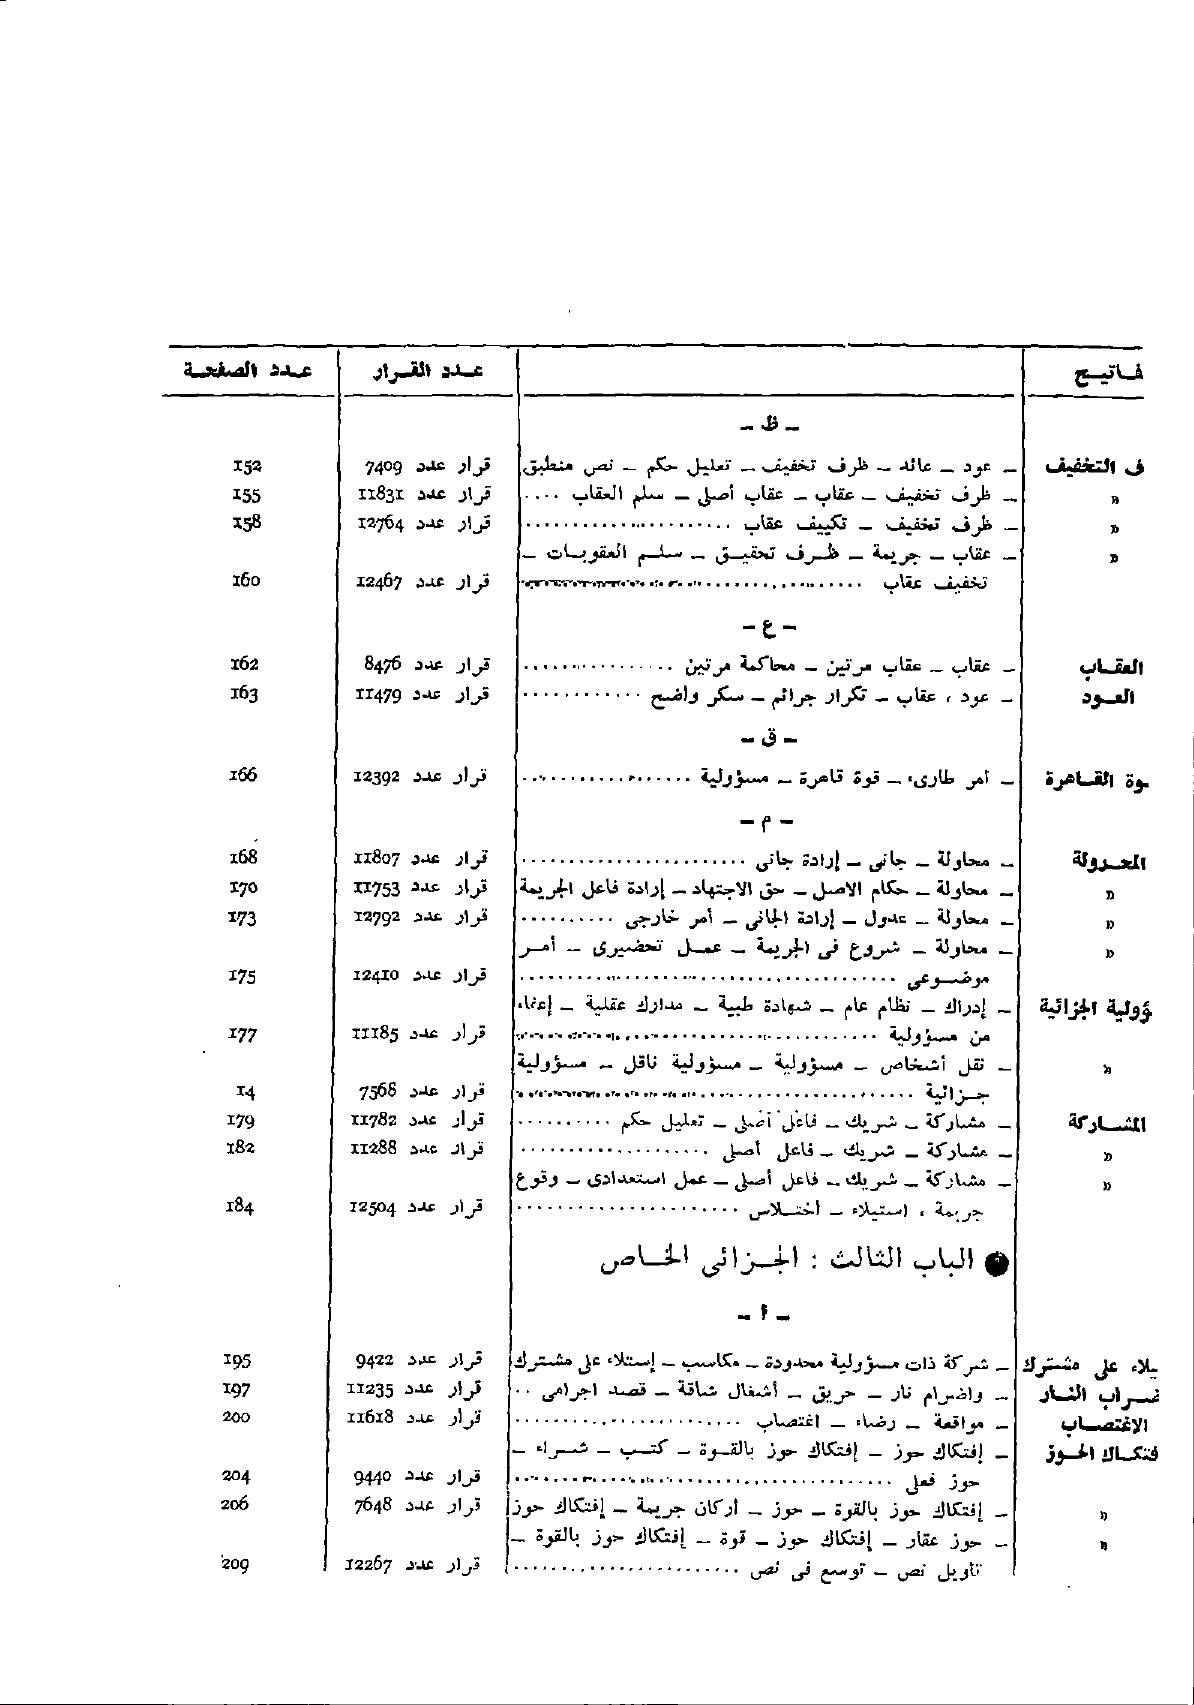 فاتيح عدد القرار عدد الصفحة
- ظ -
ف التخفيف - عود - عائد - ظرف تخفيف - تعليل حكم - نص منطبق قرار عدد 7409 152
» - ظرف تخفيف - عقاب - عقاب أصلى - سلم العقاب .... قرار عدد 11831 155
» - ظرف تخفيف - تكييف عقاب .................... قرار عدد 12764 158
» - عقاب - جريمة - ظرف تحقيق - سلم العقوبات -
تخفيف عقاب .................... قرار عدد 12467 160
- ع -
العقاب - عقاب - عقاب مرتين - محاكمة مرتين ................ قرار عدد 8476 162
العود - عود ، عقاب - تكرار جرائم - سكر واضح ............ قرار عدد 11479 163
- ق -
وة القاهرة - أمر طارىء - قوة قاهرة - مسؤولية .................. قرار عدد 12392 166
- م -
المحـولة - محاولة - جانى - إرادة جانى ........................ قرار عدد 11807 168
» - محاولة - حكام الاصل - حق الاجتهاد - إرادة فاعل الجريمة قرار عدد 11753 170
» - محاولة - عدول - إرادة الجانى - أمر خارجى .......... قرار عدد 12792 173
» - محاولة - شروع فى الجريمة - عمل تحضيرى - أمر
موضوعى ........................................ قرار عدد 12410 175
ؤولية الجزائية - إدراك - نظام عام - شهادة طبية - مدارك عقلية - إعفاء
من مسؤولية ........................................ قرار عدد 11185 177
» - نقل أشخاص - مسؤولية - مسؤولية ناقل - مسؤولية
جزائية ........................................ قرار عدد 7568 14
المشاركة - مشاركة - شريك - فاعل أصلى - تعليل حكم .......... قرار عدد 11782 179
» - مشاركة - شريك - فاعل أصلى .................... قرار عدد 11288 182
» - مشاركة - شريك - فاعل أصلى - عمل استعدادى - وقوع
جريمة ، استيلاء - اختلاس ........................ قرار عدد 12504 184
● الباب الثالث : الجزائى الخاص
- أ -
يلاء على مشترك - شركة ذات مسؤولية محدودة - مكاسب - إستلاء على مشترك قرار عدد 9422 195
ضراب النار - واضرام نار - حريق - أشغال شاقة - قصد اجرامى .. قرار عدد 11235 197
الاغتصاب - مواقعة - رضاء - اغتصاب ........................ قرار عدد 11618 200
فتكاك الحوز - إفتكاك حوز - إفتكاك حوز بالقوة - كتب - شراء -
حوز فعلى ........................................ قرار عدد 9440 204
» - إفتكاك حوز بالقوة - حوز - أركان جريمة - إفتكاك حوز قرار عدد 7648 206
» - حوز عقار - إفتكاك حوز - قوة - إفتكاك حوز بالقوة -
تاويل نص - توسع فى نص ........................ قرار عدد 12267 209